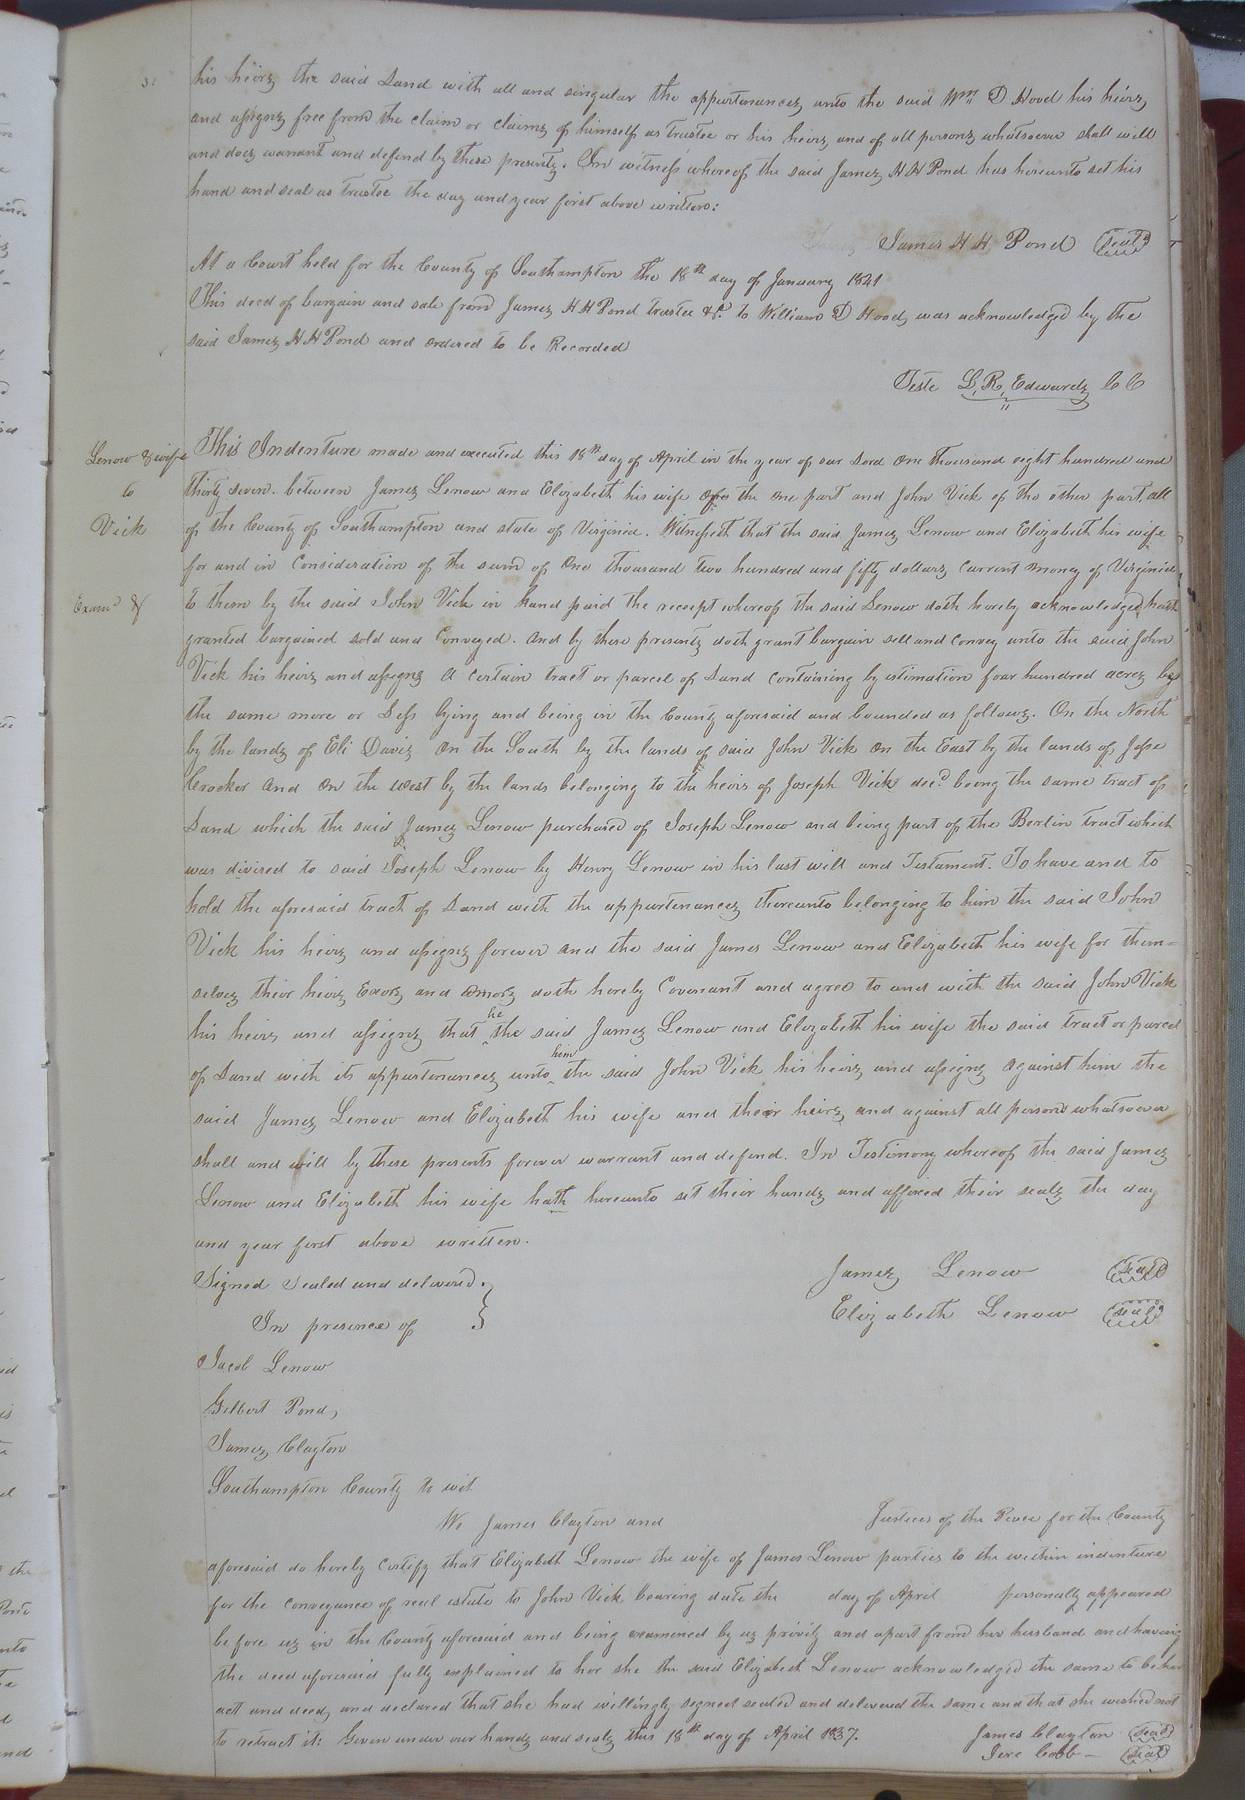 his heirs the said Land with all and singular the appurtenances unto the said Wm D Hood his heirs
and assigns free from the claim or claims of himself as trustee or his heirs and of all persons whatsoever shall will
and does warrant and defend by these presents. In witness whereof the said James H H Pond has hereunto set his
hand and seal as trustee the day and year first above written:
James H H Pond (Seal)
At a Court held for the County of Southampton the 18th day of January 1841
This deed of bargain and sale from James H H Pond trustee &c. to William D Hood, was acknowledged by the
said James H H Pond and ordered to be Recorded
Teste L, R, Edwards C C
Lenow & wife
to
Vick
Examd &
This Indenture made and executed this 18th day of April in the year of our Lord One thousand eight hundred and
thirty seven. between James Lenow and Elizabeth his wife of the One part and John Vick of the other part, all
of the County of Southampton and state of Virginia. Witnesseth that the said James Lenow and Elizabeth his wife
for and in Consideration of the sum of One thousand two hundred and fifty dollars current money of Virginia
to them by the said John Vick in hand paid the receipt whereof the said Lenow doth hereby acknowledged, hath
granted bargained sold and Conveyed. And by these presents doth grant bargain sell and convey unto the said John
Vick his heirs and assigns A certain tract or parcel of Land containing by estimation four hundred acres be
the same more or Less lying and being in the County aforesaid and bounded as follows. On the North
by the lands of Eli Davis On the South by the lands of said John Vick On the East by the lands of Jesse
Crocker And On the West by the lands belonging to the heirs of Joseph Vick decd. being the same tract of
Land which the said James Lenow purchased of Joseph Lenow and being part of the Berlin tract which
was divised to said Joseph Lenow by Henry Lenow in his last will and Testament. To have and to
hold the aforesaid tract of Land with the appurtenances thereunto belonging to him the said John
Vick his heirs and assigns forever And the said James Lenow and Elizabeth his wife for them-
selves their heirs Exors, and admors doth hereby Covenant and agree to and with the said John Vick
his heirs and assigns that he the said James Lenow and Elizabeth his wife the said tract or parcel
of Land with its appurtenances unto him the said John Vick his heirs and assigns against him the
said James Lenow and Elizabeth his wife and their heirs, and against all persons whatsoever
shall and will by these presents forever warrant and defend. In Testimony whereof the said James
Lenow and Elizabeth his wife hath hereunto set their hands and affixed their seals the day
and year first above written.
Signed Sealed and delivered.
In presence of
James Lenow (Seal)
Elizabeth Lenow (Seal)
Jacob Lenow
Gilbert Pond,
James Clayton
Southampton County to wit
We James Clayton and Justices of the Peace for the County
aforesaid do hereby Certify that Elizabeth Lenow the wife of James Lenow parties to the within indenture
for the conveyance of real estate to John Vick bearing date the day of April personally appeared
before us in the County aforesaid and being examined by us privily and apart from her husband and having
the deed aforesaid fully explained to her she the said Elizabeth Lenow acknowledged the same to be her
act and deed, and declared that she had willingly signed sealed and delivered the same and that she wished not
to retract it: Given under our hands and seals this 18th day of April 1837.
James Clayton (Seal)
Jere Cobb - (Seal)